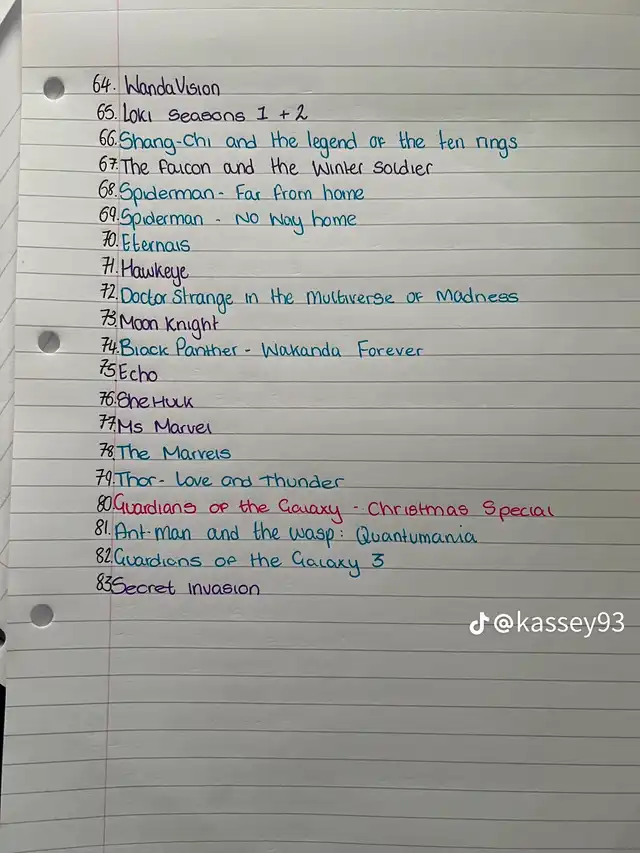 64. WandaVision
65. Loki Seasons 1 + 2
66. Shang-Chi and the legend of the ten rings
67. The Falcon and the Winter Soldier
68. Spiderman - Far from home
69. Spiderman - No Way home
70. Eternals
71. Hawkeye
72. Doctor Strange in the Multiverse of Madness
73. Moon Knight
74. Black Panther - Wakanda Forever
75 Echo
76. She Hulk
77. Ms Marvel
78. The Marvels
79. Thor - Love and Thunder
80 Guardians of the Galaxy - Christmas Special
81. Ant-man and the wasp: Quantumania
82. Guardians of the Galaxy 3
83 Secret invasion
@kassey93